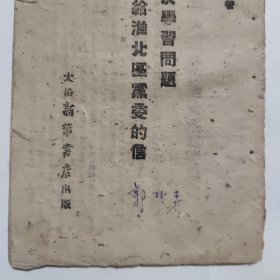 著
學習問題
給淮北區黨委的信
太岳新華書店出版